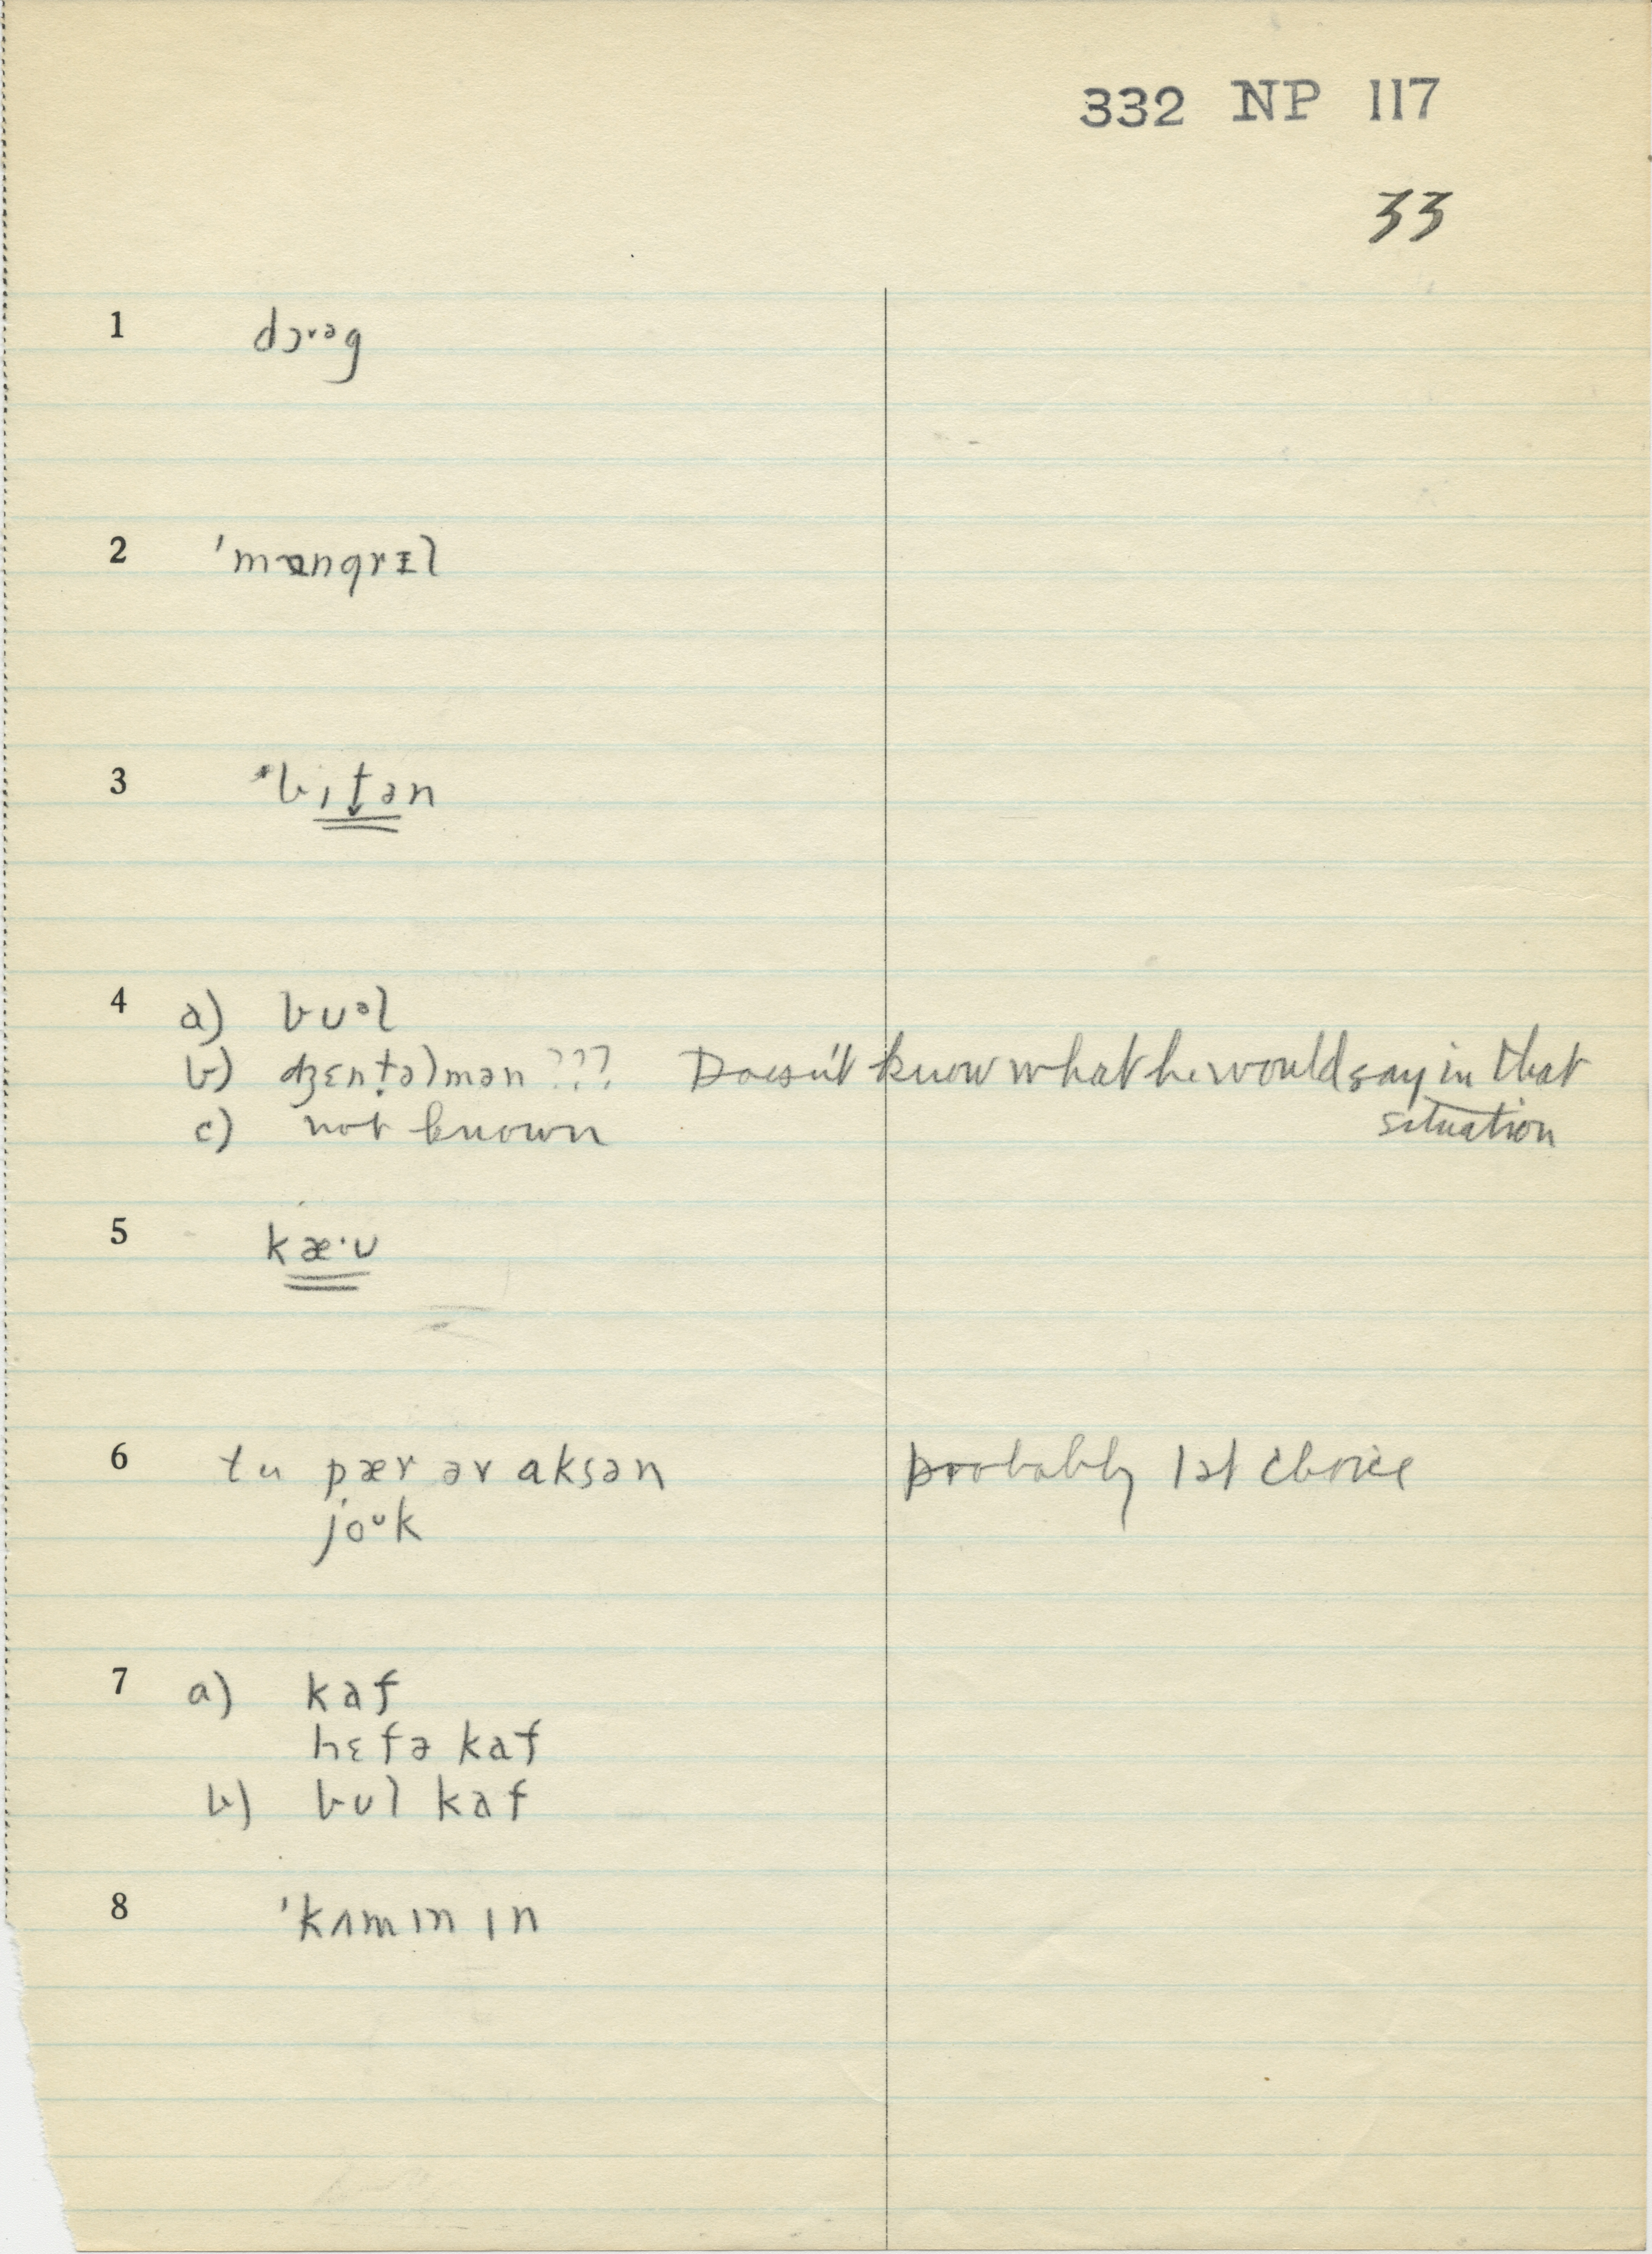 332 NP 117
33
1 dɔˑᵊg
2 ˈmɒngrɪl
3 ˈbɪt̬ən
4 a) bʊᵊl
b) ʤɛnt̬əlmən ??? Doesn't know what he would say in that
situation
c) not known
5 kæ·ʊ
6 tu pær ər aksən probably 1st choice
joᶷk
7 a) kaf
hɛfə kaf
b) bʊl kaf
8 ˈkʌmɪn ɪn